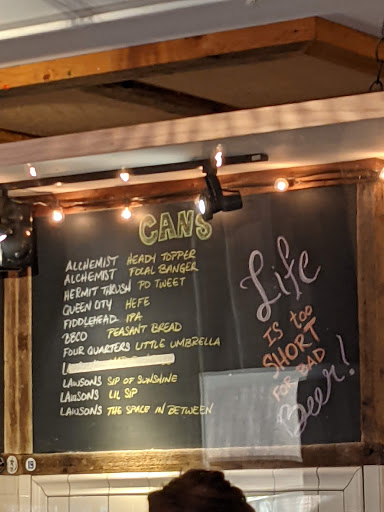 CANS
ALCHEMIST HEADY TOPPER
ALCHEMIST FOCAL BANGER
HERMIT THRUSH PO TWEET
QUEEN CITY HEFE
FIDDLEHEAD IPA
BBCO PEASANT BREAD
FOUR QUARTERS LITTLE UMBRELLA
LAWSONS SIP OF SUNSHINE
LAWSONS LIL SIP
LAWSONS THE SPACE IN BETWEEN
Life
IS TOO
SHORT
FOR BAD
Beer!